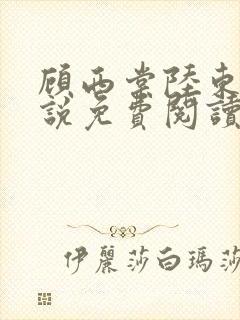 顾西棠陸東
説免費閱讀
伊麗莎白瑪莎